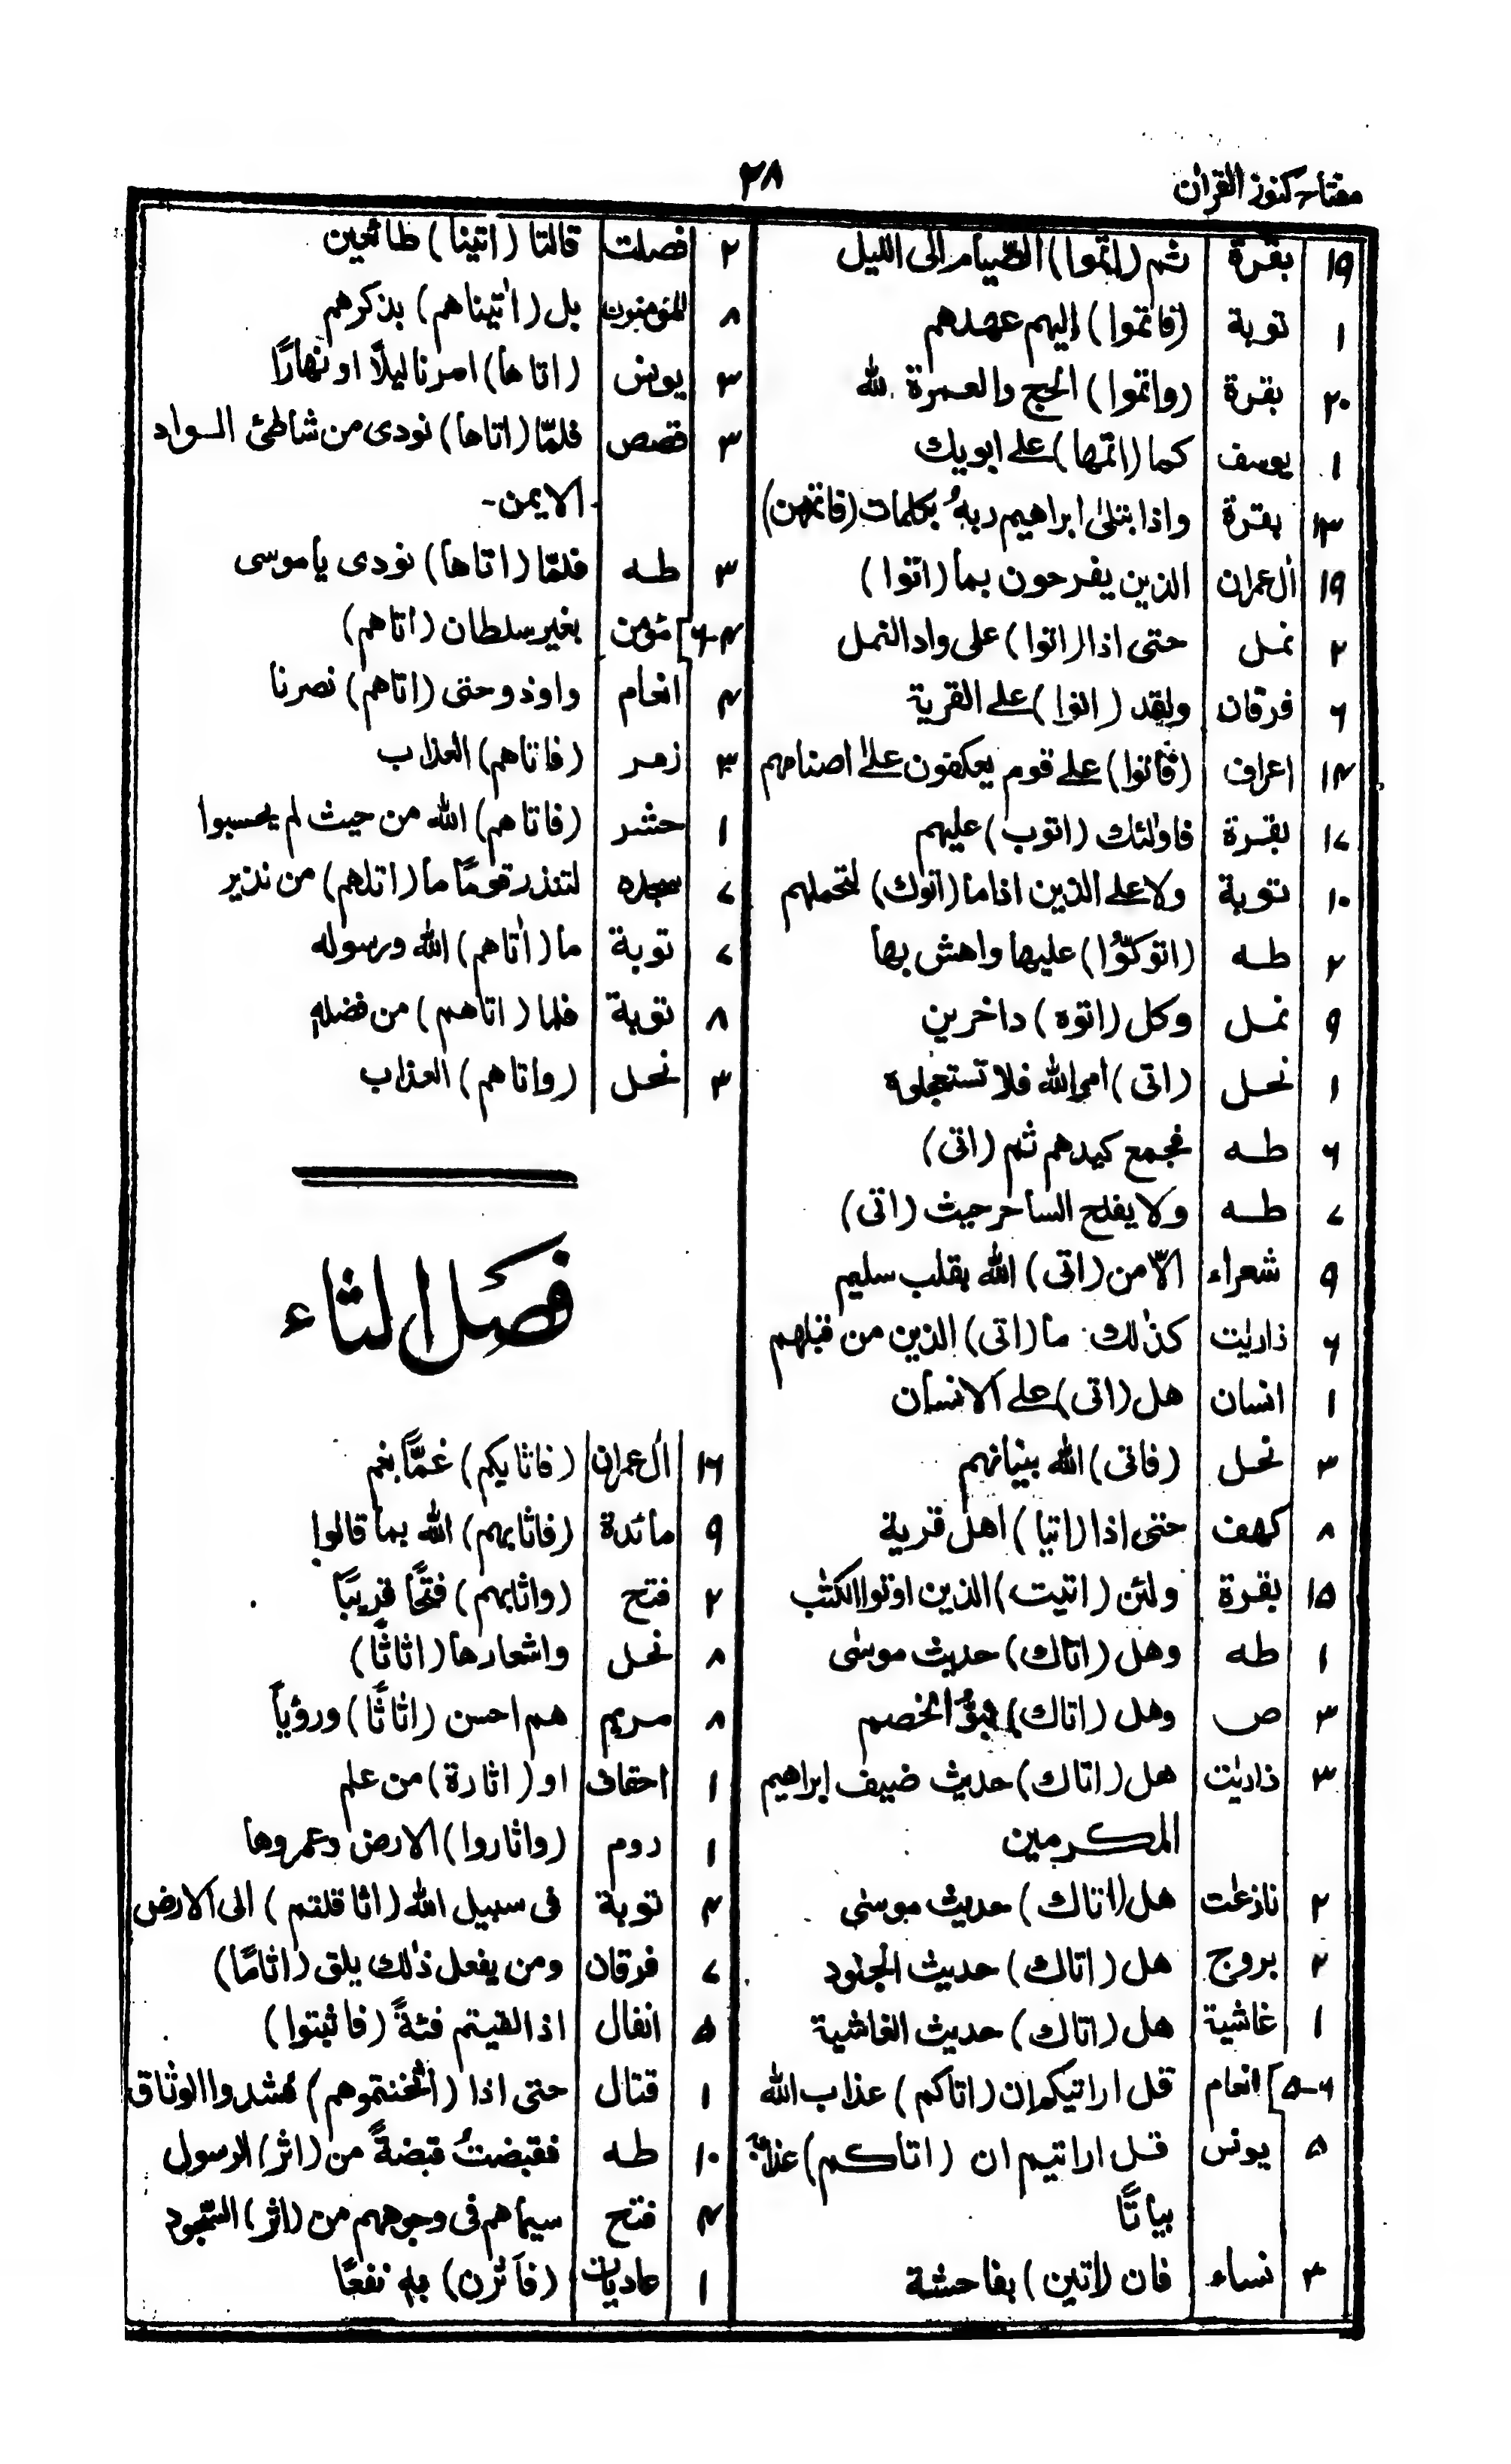 مفتاح كنوز القران
٢٨
١٩ بقرة ثم (اتموا) الصيام الى الليل
١ توبة (فاتموا) اليهم عهدهم
٢٠ بقرة (واتموا) الحج والعمرة لله
١ يوسف كما (اتمها) على ابويك
بقرة واذابتلىٰ ابراهيم ربهُ بكلمات (فاتمهن)
١٩ اٰل عمران الذين يفرحون بما (اتوا)
٢ نمل حتى اذا (اتوا) على واد النمل
٦ فرقان ولقد (اتوا) على القرية
اعراف (فاتوا) على قوم يعكفون علىٰ اصنامهم
١٧ بقرة فاولئك (اتوب) عليهم
١٠ توبة ولا على الذين اذا ما (اتوك) لتحملهم
٢ طه (اتوكؤا) عليها واهش بها
٩ نمل وكل (اتوه) داخرين
١ نحل (اتى) امر الله فلا تستعجلوه
٦ طه فجمع كيدهم ثم (اتى)
٧ طه ولا يفلح الساحر حيث (اتى)
٩ شعراء الّا من (اتى) الله بقلب سليم
٦ ذاريٰت كذٰلك ما (اتى) الذين من قبلهم
١ انسان هل (اتى) على الانسان
٣ نحل (فاتى) الله بنيانهم
٨ كهف حتى اذا (اتيا) اهل قرية
١٥ بقرة ولئن (اتيت) الذين اوتوا الكتٰب
١ طه وهل (اتاك) حديث موسٰى
٣ ص وهل (اتاك) نبؤُ الخصم
٣ ذاريٰت هل (اتاك) حديث ضيف ابراهيم
المكرمين
٢ نازعٰت هل (اتاك) حديث موسٰى
٢ بروج هل (اتاك) حديث الجنود
١ غاشية هل (اتاك) حديث الغاشية
٥-٤] انعام قل ارايتكم ان (اتاكم) عذاب الله
٥ يونس قل ارايتم ان (اتاكم) عذابهٗ
بياتًا
٣ نساء فان (اتين) بفاحشة
٢ فصلت قالتا (اتينا) طائعين
٨ المؤمنون بل (اتيناهم) بذكرهم
٣ يونس (اتاها) امرنا ليلًا او نهارًا
٣ قصص فلمّا (اتاها) نودى من شاطئ الواد
الايمن-
٣ طه فلمّا (اتاها) نودى ياموسى
٤-٦] مؤمن بغير سلطان (اتاهم)
٤ انعام واوذوحتى (اتاهم) نصرنا
٣ زمر (فاتاهم) العذاب
١ حشر (فاتاهم) الله من حيث لم يحسبوا
٧ سجده لتنذر قومًا ما (اتٰهم) من نذير
٧ توبة ما (اٰتاهم) الله ورسوله
٨ توبة فلما (اتاهم) من فضله
٣ نحل (واتاهم) العذاب
فصل الثاء
١٦ اٰل عمران (فاثابكم) غمًّا بغم
٩ مائدة (فاثابهم) الله بما قالوا
٢ فتح (واثابهم) فتحًا قريبًا
٨ نحل واشعارها (اثاثًا)
٨ مريم هم احسن (اثاثًا) ورؤياً
١ احقاف او (اثارة) من علم
١ روم (واثاروا) الارض وعمروها
٤ توبة فى سبيل الله (اثاقلتم) الى الارض
٧ فرقان ومن يفعل ذٰلك يلق (اثامًا)
٥ انفال اذا لقيتم فئةً (فاثبتوا)
١ قتال حتى اذا (اثخنتموهم) فشدوا الوثاق
١٠ طه فقبضتُ قبضةً من (اثر) الرسول
٤ فتح سيماهم فى وجوههم من (اثر) السّجود
١ عاديات (فاثرن) به نفعًا